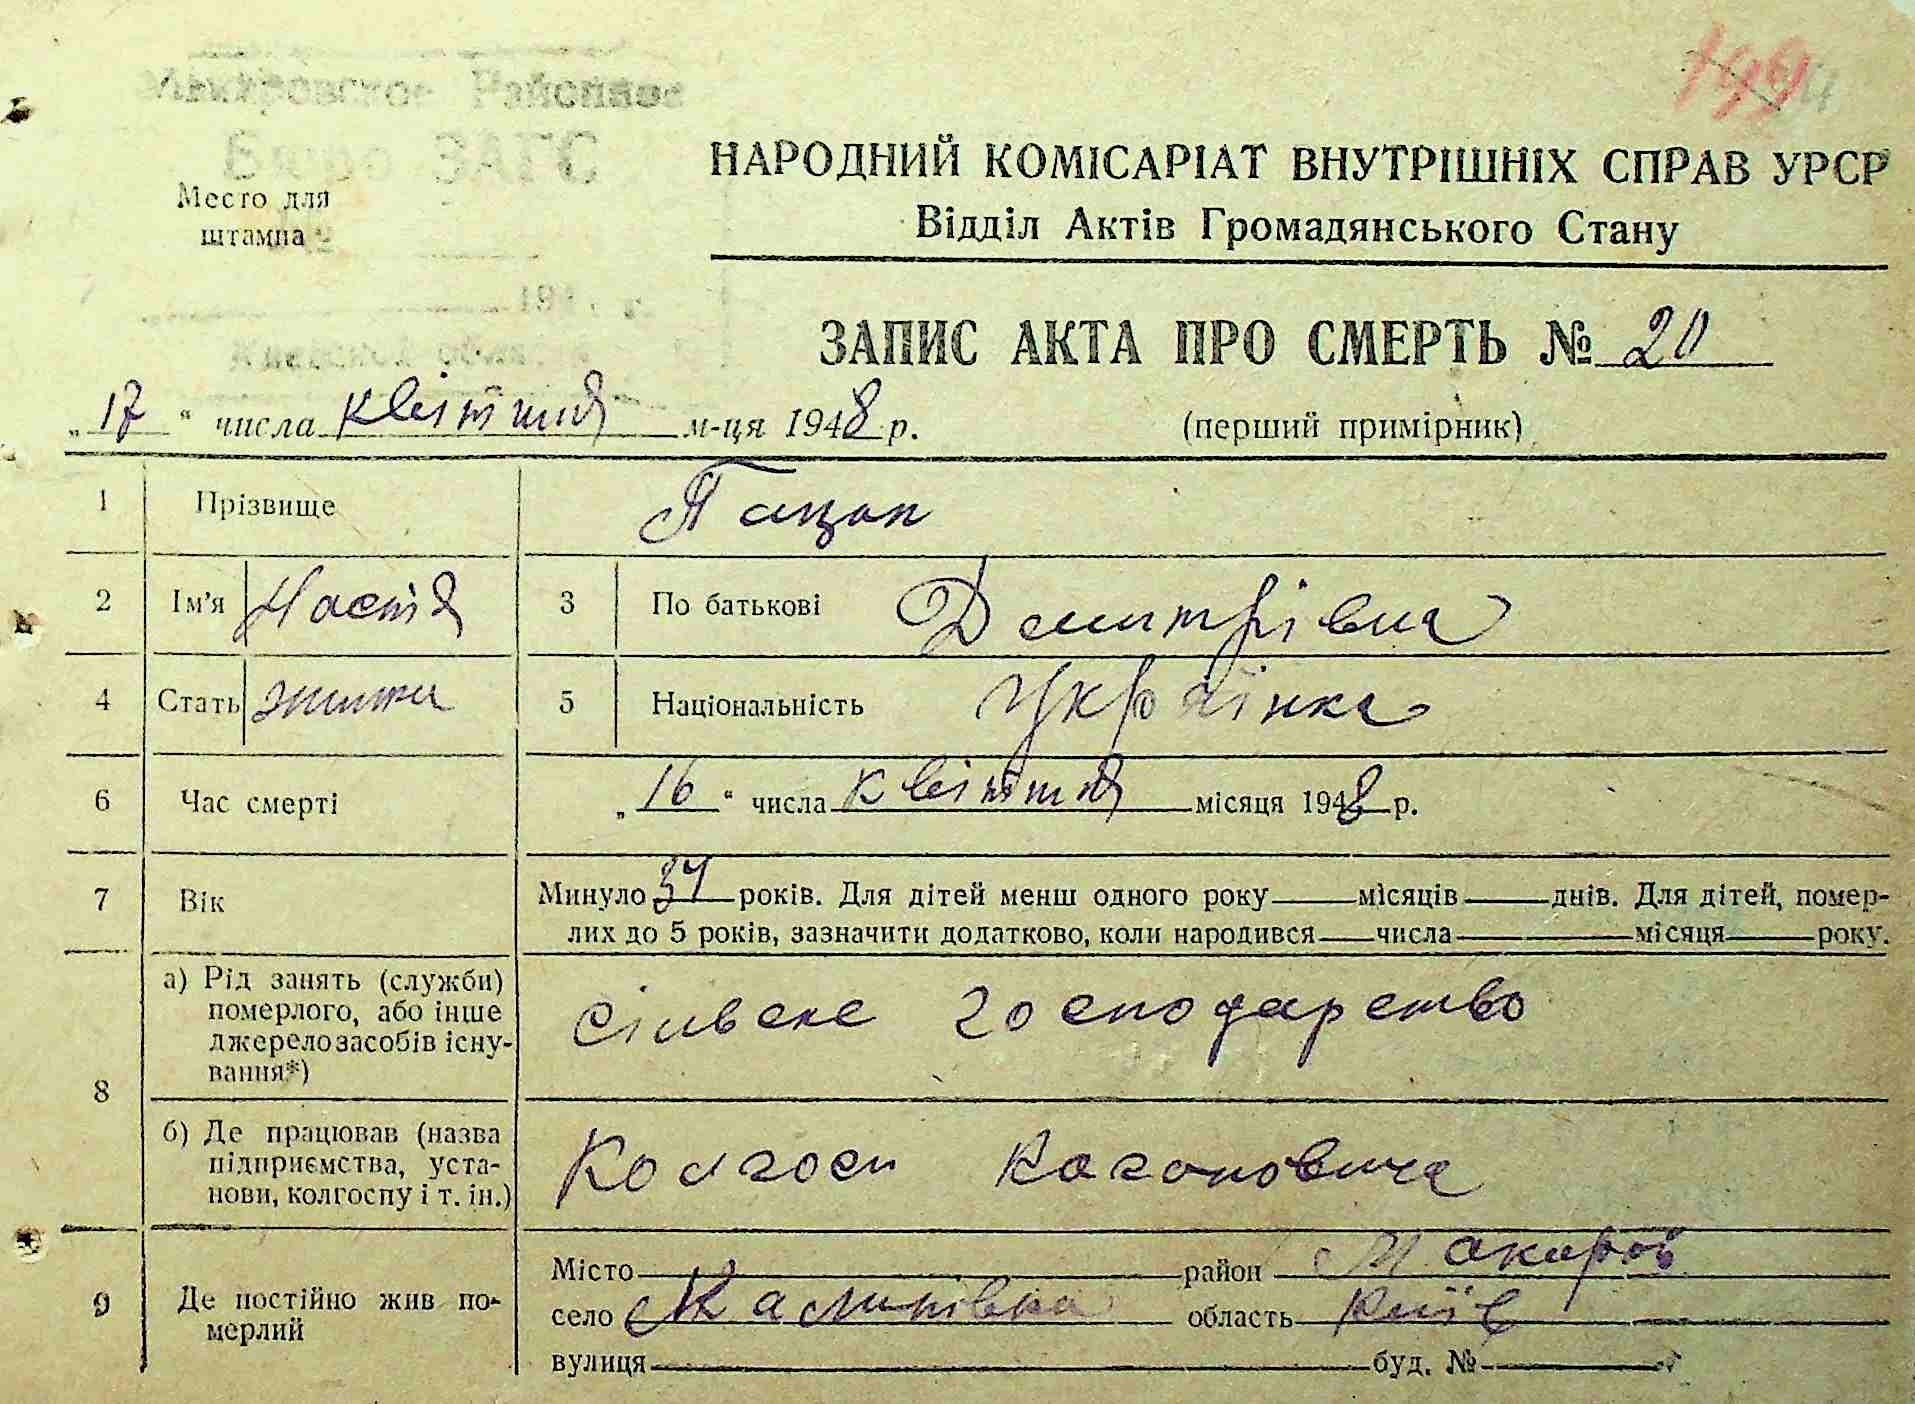 Районное
Бюро ЗАГС
Место для
штампа
194 г.
199
НАРОДНИЙ КОМІСАРІАТ ВНУТРІШНІХ СПРАВ УРСР
Відділ Актів Громадянського Стану
ЗАПИС АКТА ПРО СМЕРТЬ № 20
„17“ числа квітня м-ця 1948 р. (перший примірник)
1 Прізвище Пацан
2 Ім’я Настя 3 По батькові Дмитрівна
4 Стать жінка 5 Національність Українка
6 Час смерті „16“ числа квітня місяця 1948 р.
7 Вік Минуло 34 років. Для дітей менш одного року місяців днів. Для дітей, помер-
лих до 5 років, зазначити додатково, коли народився числа місяця року.
8 а) Рід занять (служби)
померлого, або інше
джерело засобів існу-
вання*)
сільске господарство
б) Де працював (назва
підприємства, уста-
нови, колгоспу і т. ін.)
Колгосп Кагановича
9 Де постійно жив по-
мерлий
Місто район Макаров
село Калинівка область Київ
вулиця буд. №